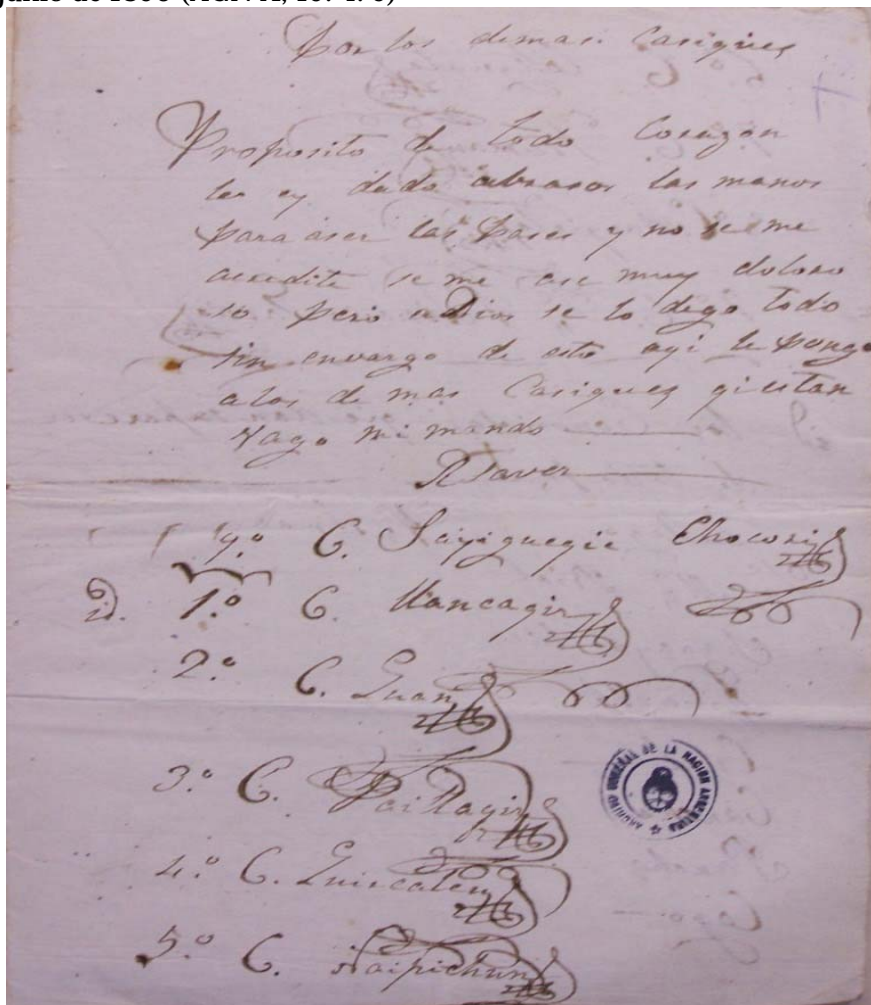 Por los demas Casiques
Proposito de todo Corazon
les ey dado abrasos las manos
para aser las Pases y no se me
acredite se me ase muy doloro
so pero a Dios se lo dego todo
sin envargo de esto ayi le pongo
a los de mas Casiques qi estan
Vago mi mando
A Saver
C. Sayigueqie Chocori
1.º C. Llancaqir
2.º C. Guan
3.º C. Paillaqir
4.º C. Guircaleu
5.º C. Naipichun
ARCHIVO GENERAL DE LA NACION ARGENTINA